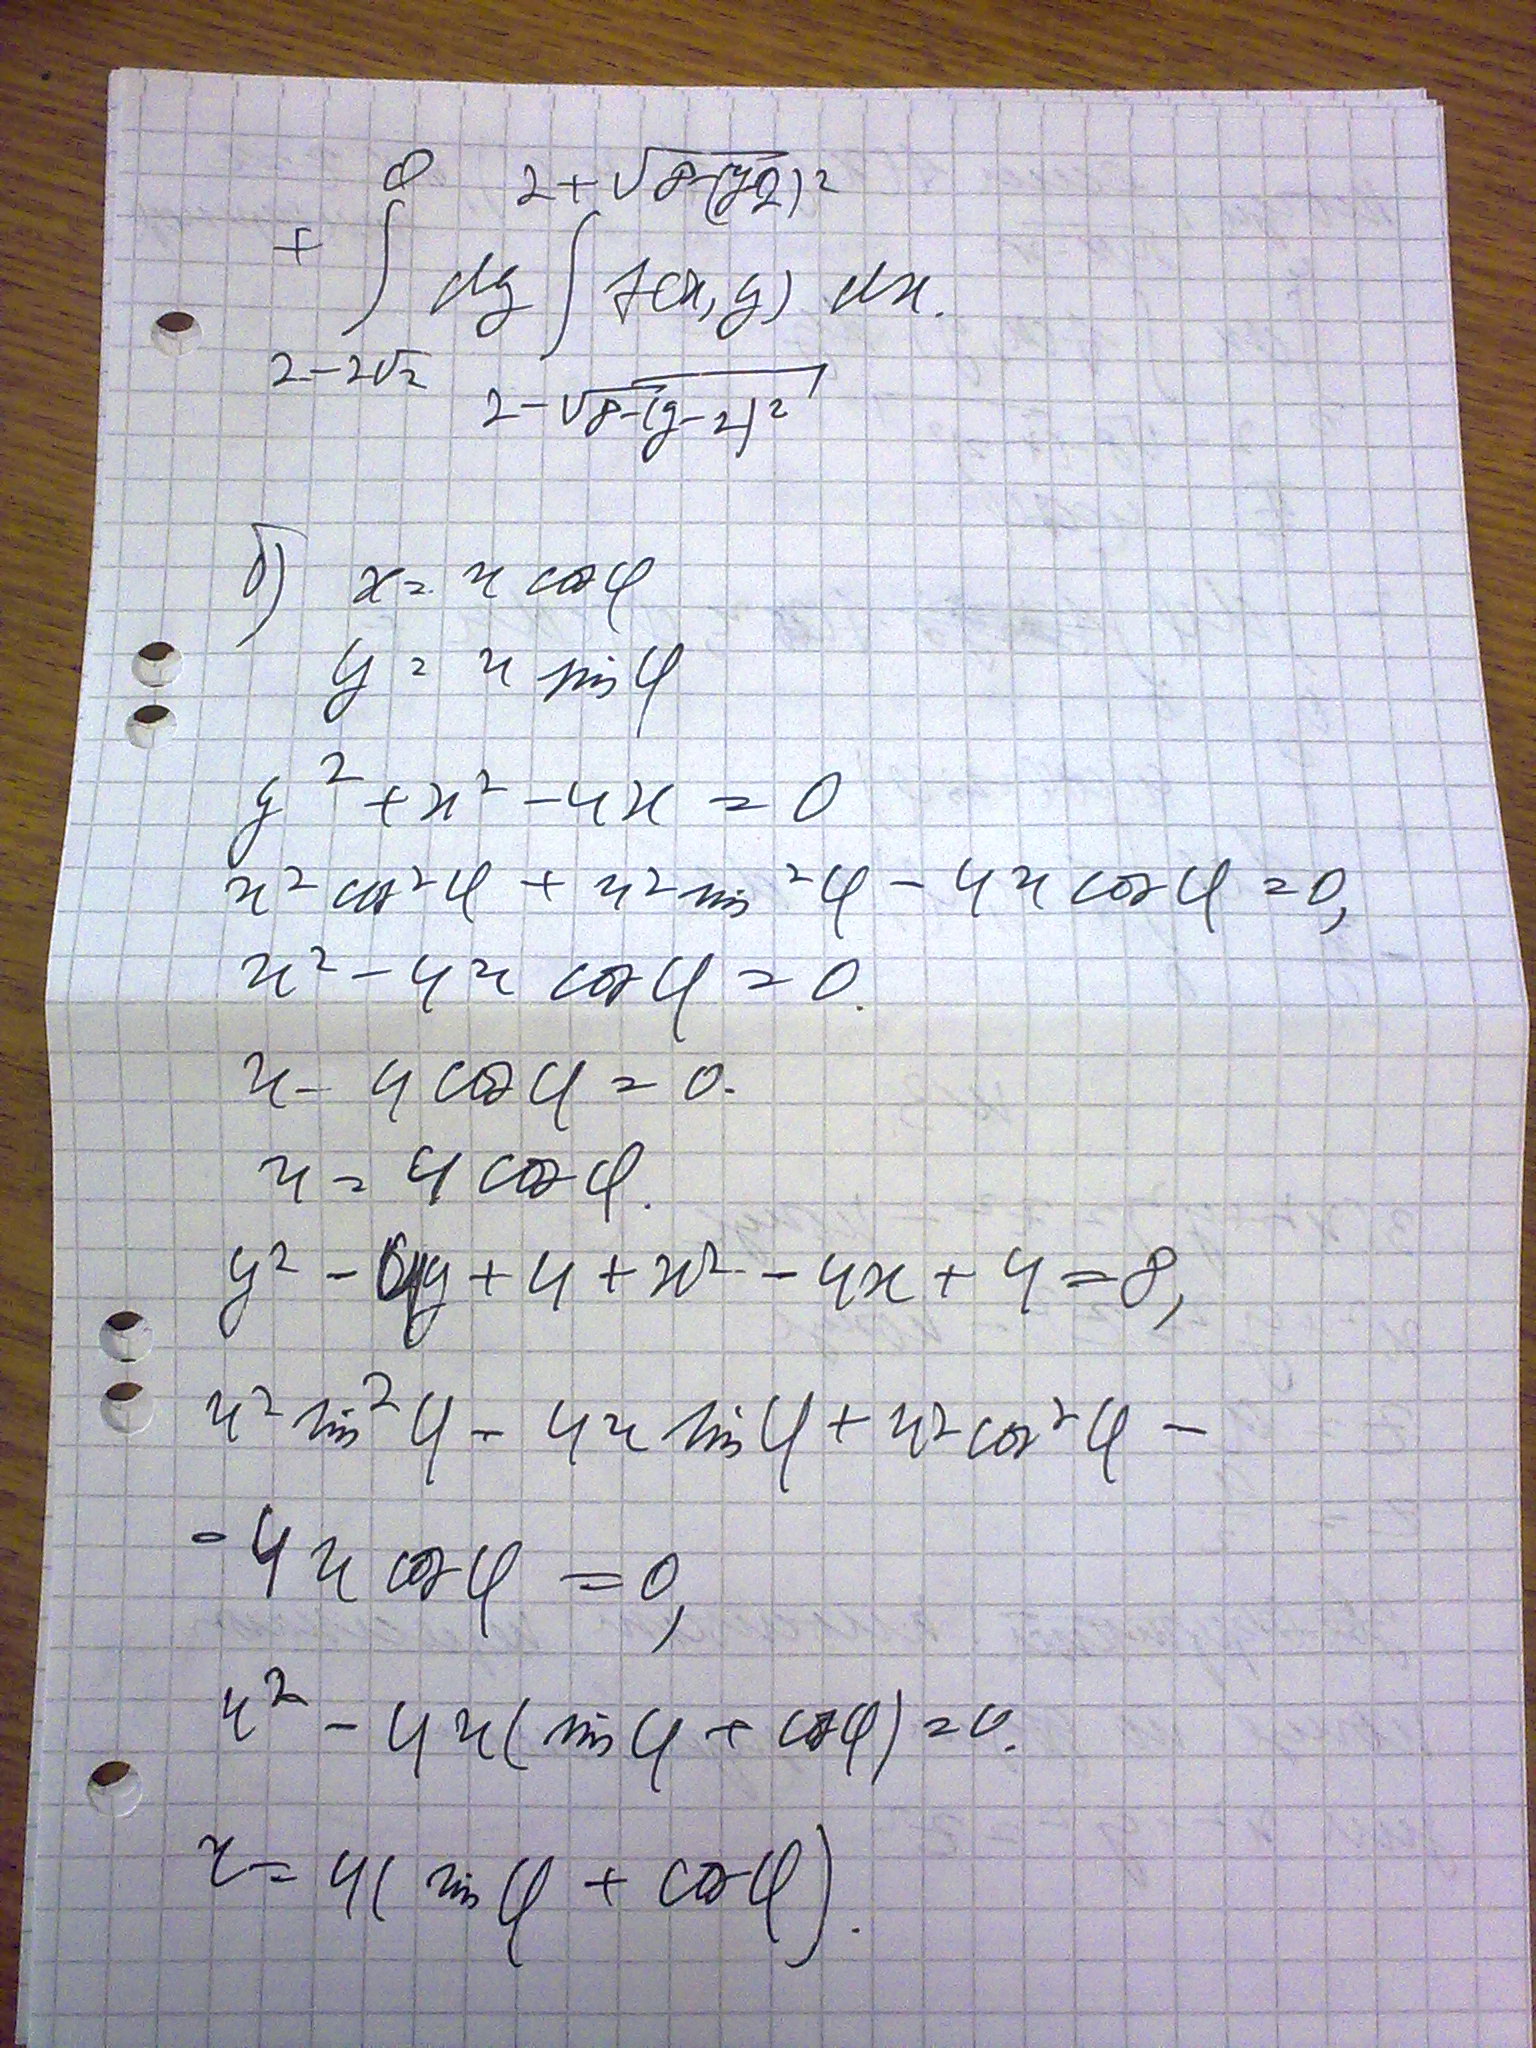 + ∫_{2-2√2}^{0} dy ∫_{2-√(8-(y-2)²)}^{2+√(8-(y-2)²)} f(x,y) dx.
б) x = r cos φ
y = r sin φ
y² + x² - 4x = 0
r² cos² φ + r² sin² φ - 4 r cos φ = 0,
r² - 4 r cos φ = 0.
r - 4 cos φ = 0.
r = 4 cos φ.
y² - 4y + 4 + x² - 4x + 4 = 8,
r² sin² φ - 4 r sin φ + r² cos² φ -
- 4 r cos φ = 0,
r² - 4 r (sin φ + cos φ) = 0.
r = 4( sin φ + cos φ).